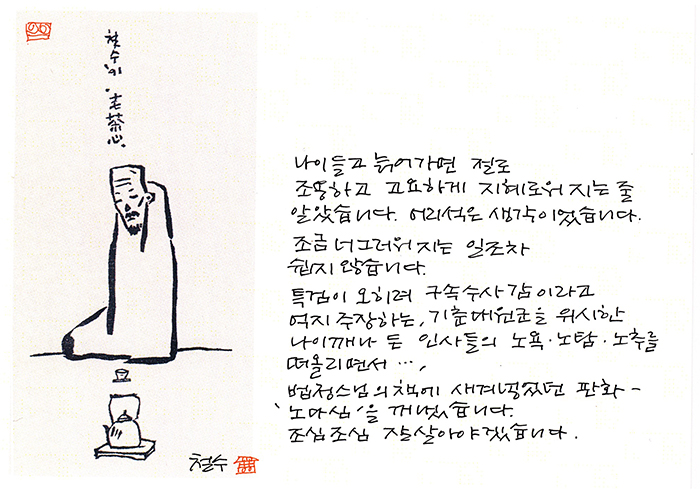 철수이
老茶心
나이들고 늙어가면 절로
조용하고 고요하게 지혜로워 지는 줄
알았습니다. 어리석은 생각이었습니다.
조금 너그러워 지는 일조차
쉽지 않습니다.
특검이 오히려 구속수사 감 이라고
억지 주장하는, 기춘대원군을 위시한
나이깨나 든 인사들의 노욕·노탐·노추를
떠올리면서 …,
법정스님의 책에 새겨넣었던 판화 -
'노다심'을 꺼냈습니다.
조심조심 잘살아야겠습니다.
철수